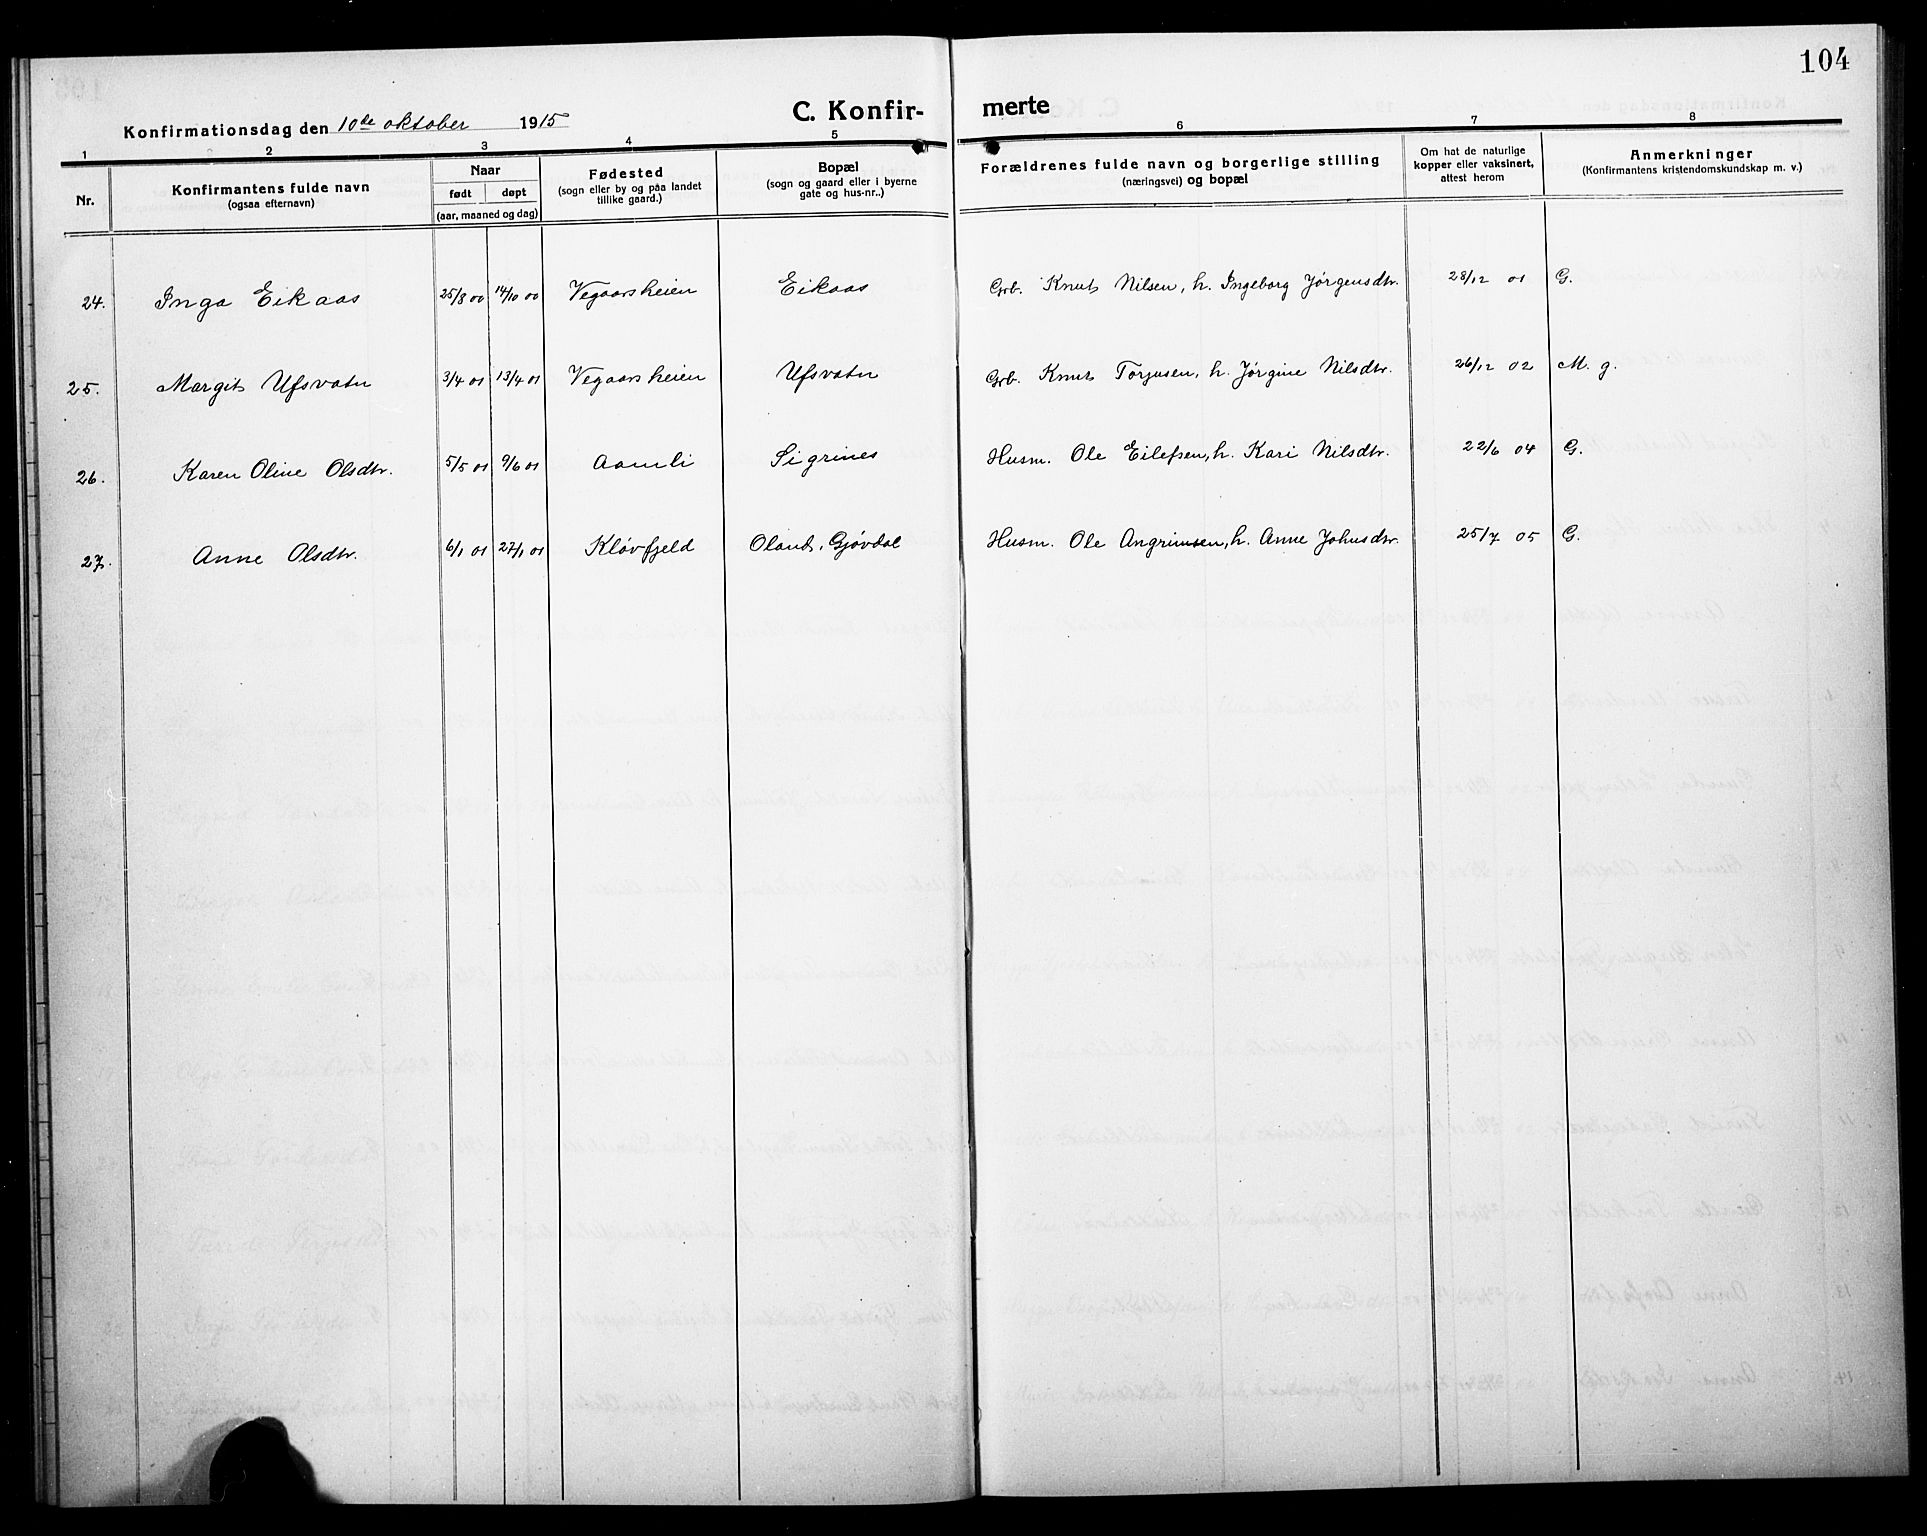 104
Konfirmationsdag den 10de oktober 1915
C. Konfir- merte
1 2 3 4 5 6 7 8
Nr.
Konfirmantens fulde navn
(ogsaa efternavn)
Naar
født døpt
(aar, maaned og dag)
Fødested
(sogn eller by og paa landet
tillike gaard.)
Bopæl
(sogn og gaard eller i byerne
gate og hus-nr..)
Forældrenes fulde navn og borgerlige stilling
(næringsvei) og bopæl
Om hat de naturlige
kopper eller vaksinert,
attest herom
Anmerkninger
(Konfirmantens kristendomskundskap m. v.)
24. Inga Eikaas 25/8 00 14/10 00 Vegaarsheien Eikaas Grb. Knut Nilsen, h. Ingeborg Jørgensdtr. 28/12 01 G.
25. Margit Ufsvatn 3/4 01 13/4 01 Vegaarsheien Ufsvatn Grb. Knut Torjusen, h. Jørgine Nilsdtr. 26/12 02 M. g.
26. Karen Oline Olsdtr. 5/5 01 9/6 01 Aamli Sigrines Husm. Ole Eilefsen, h. Kari Nilsdtr. 22/6 04 G.
27. Anne Olsdtr. 6/1 01 27/1 01 Kløvfjeld Oland, Gjøvdal Husm. Ole Angrimsen, h. Anne Johnsdtr. 25/7 05 G.